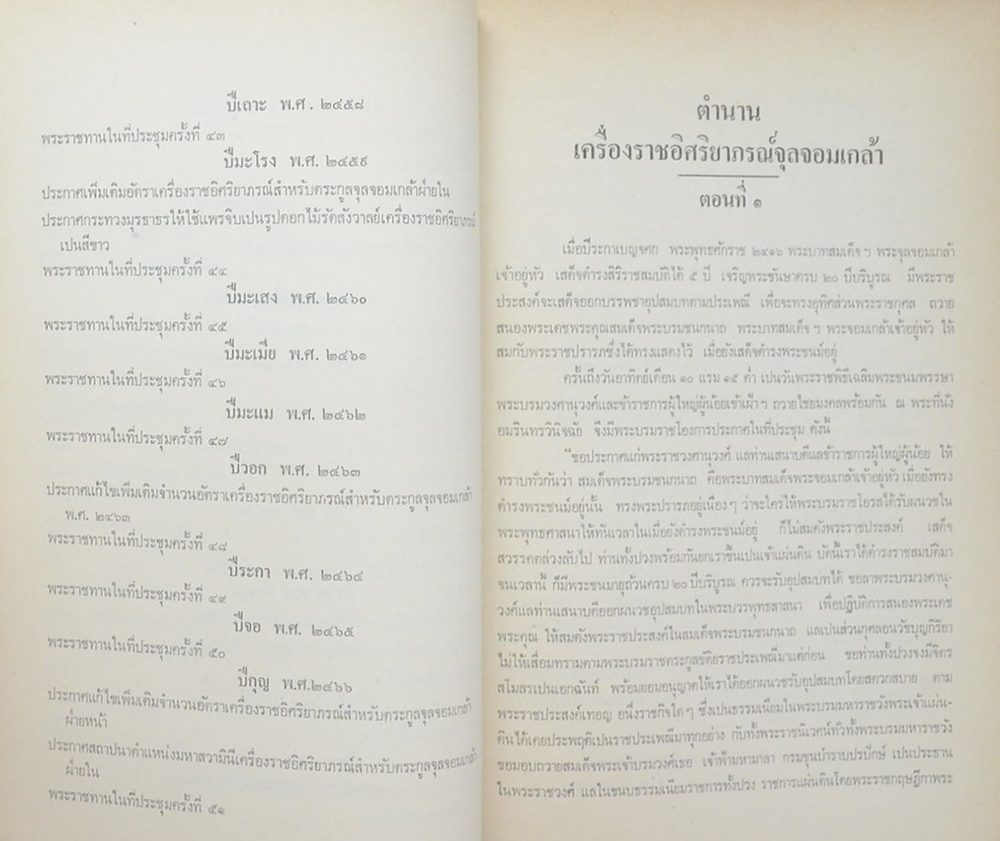 ปีเถาะ พ.ศ. ๒๔๕๘
พระราชทานในที่ประชุมครั้งที่ ๔๓
ปีมะโรง พ.ศ. ๒๔๕๙
ประกาศเพิ่มเติมอัตราเครื่องราชอิศริยาภรณ์สำหรับตระกูลจุลจอมเกล้าฝ่ายใน
ประกาศกระทวงมุรธาธรให้ใช้แพรจีบเปนรูปดอกไม้รัดสังวาลย์เครื่องราชอิศริยาภรณ์
เปนสีขาว
พระราชทานในที่ประชุมครั้งที่ ๔๔
ปีมะเสง พ.ศ. ๒๔๖๐
พระราชทานในที่ประชุมครั้งที่ ๔๕
ปีมะเมีย พ.ศ. ๒๔๖๑
พระราชทานในที่ประชุมครั้งที่ ๔๖
ปีมะแม พ.ศ. ๒๔๖๒
พระราชทานในที่ประชุมครั้งที่ ๔๗
ปีวอก พ.ศ. ๒๔๖๓
ประกาศแก้ไขเพิ่มเติมจำนวนอัตราเครื่องราชอิศริยาภรณ์สำหรับตระกูลจุลจอมเกล้า
พ.ศ. ๒๔๖๓
พระราชทานในที่ประชุมครั้งที่ ๔๘
ปีระกา พ.ศ. ๒๔๖๔
พระราชทานในที่ประชุมครั้งที่ ๔๙
ปีจอ พ.ศ. ๒๔๖๕
พระราชทานในที่ประชุมครั้งที่ ๕๐
ปีกุญ พ.ศ.๒๔๖๖
ประกาศแก้ไขเพิ่มเติมจำนวนอัตราเครื่องราชอิศริยาภรณ์สำหรับตระกูลจุลจอมเกล้า
ฝ่ายหน้า
ประกาศสถาปนาตำแหน่งมหาสวามินีเครื่องราชอิศริยาภรณ์สำหรับตระกูลจุลจอมเกล้า
ฝ่ายใน
พระราชทานในที่ประชุมครั้งที่ ๕๑
ตำนาน
เครื่องราชอิศริยาภรณ์จุลจอมเกล้า
ตอนที่ ๑
เมื่อปีระกาเบญจศก พระพุทธศักราช ๒๔๑๖ พระบาทสมเด็จฯ พระจุลจอมเกล้า
เจ้าอยู่หัว เสด็จดำรงสิริราชสมบัติได้ ๕ ปี เจริญพระชันษาครบ ๒๐ ปีบริบูรณ มีพระราช
ประสงค์จะเสด็จออกบรรพชาอุปสมบทตามประเพณี เพื่อจะทรงอุทิศส่วนพระราชกุศล ถวาย
สนองพระเดชพระคุณสมเด็จพระบรมชนกนาถ พระบาทสมเด็จฯ พระจอมเกล้าเจ้าอยู่หัว ให้
สมกับพระราชปรารภซึ่งได้ทรงแสดงไว้ เมื่อยังเสด็จดำรงพระชนม์อยู่
ครั้นถึงวันอาทิตย์เดือน ๑๐ แรม ๑๕ ค่ำ เปนวันพระราชพิธีเฉลิมพระชนมพรรษา
พระบรมวงศานุวงศ์และข้าราชการผู้ใหญ่ผู้น้อยเข้าเฝ้าฯ ถวายไชยมงคลพร้อมกัน ณ พระที่นั่ง
อมรินทรวินิจฉัย จึงมีพระบรมราชโองการประกาศในที่ประชุม ดังนี้
"ขอประกาศแก่พระราชวงศานุวงศ์ แลท่านเสนาบดีแลข้าราชการผู้ใหญ่ผู้น้อย ให้
ทราบทั่วกันว่า สมเด็จพระบรมชนกนาถ คือพระบาทสมเด็จพระจอมเกล้าเจ้าอยู่หัว เมื่อยังทรง
ดำรงพระชนม์อยู่นั้น ทรงพระปรารภอยู่เนืองๆ ว่าจะใคร่ให้พระบรมราชโอรสได้รับผนวชใน
พระพุทธศาสนาให้ทันเวลาในเมื่อยังดำรงพระชนม์อยู่ ก็ไม่สมดังพระราชประสงค์ เสด็จ
สวรรคตล่วงลับไป ท่านทั้งปวงพร้อมกันยกเราขึ้นเปนเจ้าแผ่นดิน บัดนี้เราได้ดำรงราชสมบัติมา
จนเวลานี้ ก็มีพระชนมายุถ้วนครบ ๒๐ ปีบริบูรณ ควรจะรับอุปสมบทได้ ขอลาพระบรมวงศานุ-
วงศ์แลท่านเสนาบดีออกผนวชอุปสมบทในพระบวรพุทธสาสนา เพื่อปฏิบัติการสนองพระเดช
พระคุณ ให้สมดังพระราชประสงค์ในสมเด็จพระบรมชนกนาถ แลเปนส่วนกุศลอนวัชบุญกิริยา
ไม่ให้เสื่อมทรามตามพระบรมราชตระกูลขัติยราชประเพณีมาแต่ก่อน ขอท่านทั้งปวงจงมีจิตร
สโมสรเปนเอกฉันท์ พร้อมยอมอนุญาตให้เราได้ออกผนวชรับอุปสมบทโดยสดวกสบาย ตาม
พระราชประสงค์เทอญ อนึ่งราชกิจใดๆ ซึ่งเปนธรรมเนียมในพระบรมมหาราชวังพระเจ้าแผ่น-
ดินได้เคยประพฤติเปนราชประเพณีมาทุกอย่าง กับทั้งพระราชนิเวศน์ทั่วทั้งพระบรมมหาราชวัง
ขอมอบถวายสมเด็จพระเจ้าบรมวงศ์เธอ เจ้าฟ้ามหามาลา กรมขุนบำราบปรปักษ์ เปนประธาน
ในพระราชวงศ์ แลในขนบธรรมเนียมราชการทั้งปวง ราชการแผ่นดินโดยพระราชกฤษฎีกาพระ